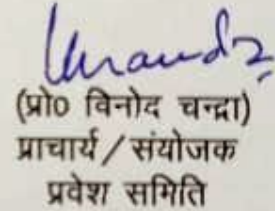 (प्रो० विनोद चन्द्रा)
प्राचार्य / संयोजक
प्रवेश समिति